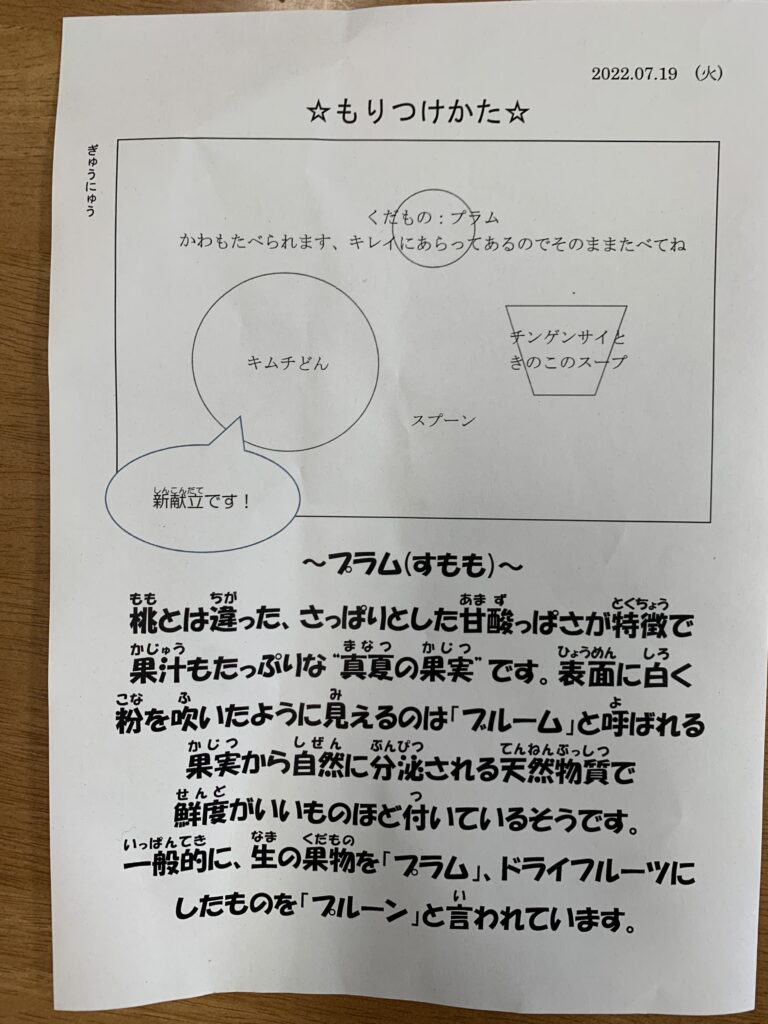 2022.07.19 (火)
☆もりつけかた☆
ぎゅうにゅう
くだもの：プラム
かわもたべられます、キレイにあらってあるのでそのままたべてね
キムチどん
チンゲンサイと
きのこのスープ
スプーン
しんこんだて
新献立です！
～プラム(すもも)～
もも ちが あま ず とくちょう
桃とは違った、さっぱりとした甘酸っぱさが特徴で
かじゅう まなつ かじつ ひょうめん しろ
果汁もたっぷりな“真夏の果実”です。表面に白く
こな ふ み よ
粉を吹いたように見えるのは「ブルーム」と呼ばれる
かじつ しぜん ぶんぴつ てんねんぶっしつ
果実から自然に分泌される天然物質で
せんど つ
鮮度がいいものほど付いているそうです。
いっぱんてき なま くだもの
一般的に、生の果物を「プラム」、ドライフルーツに
い
したものを「プルーン」と言われています。